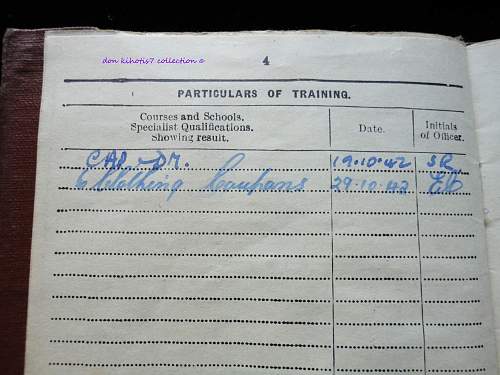 don kihotis7 collection ©
4
PARTICULARS OF TRAINING.
Courses and Schools. Date. Initials
Specialist Qualifications. of Officer.
Showing result.
19.10.42 SR
6 Clothing Coupans 29.10.43